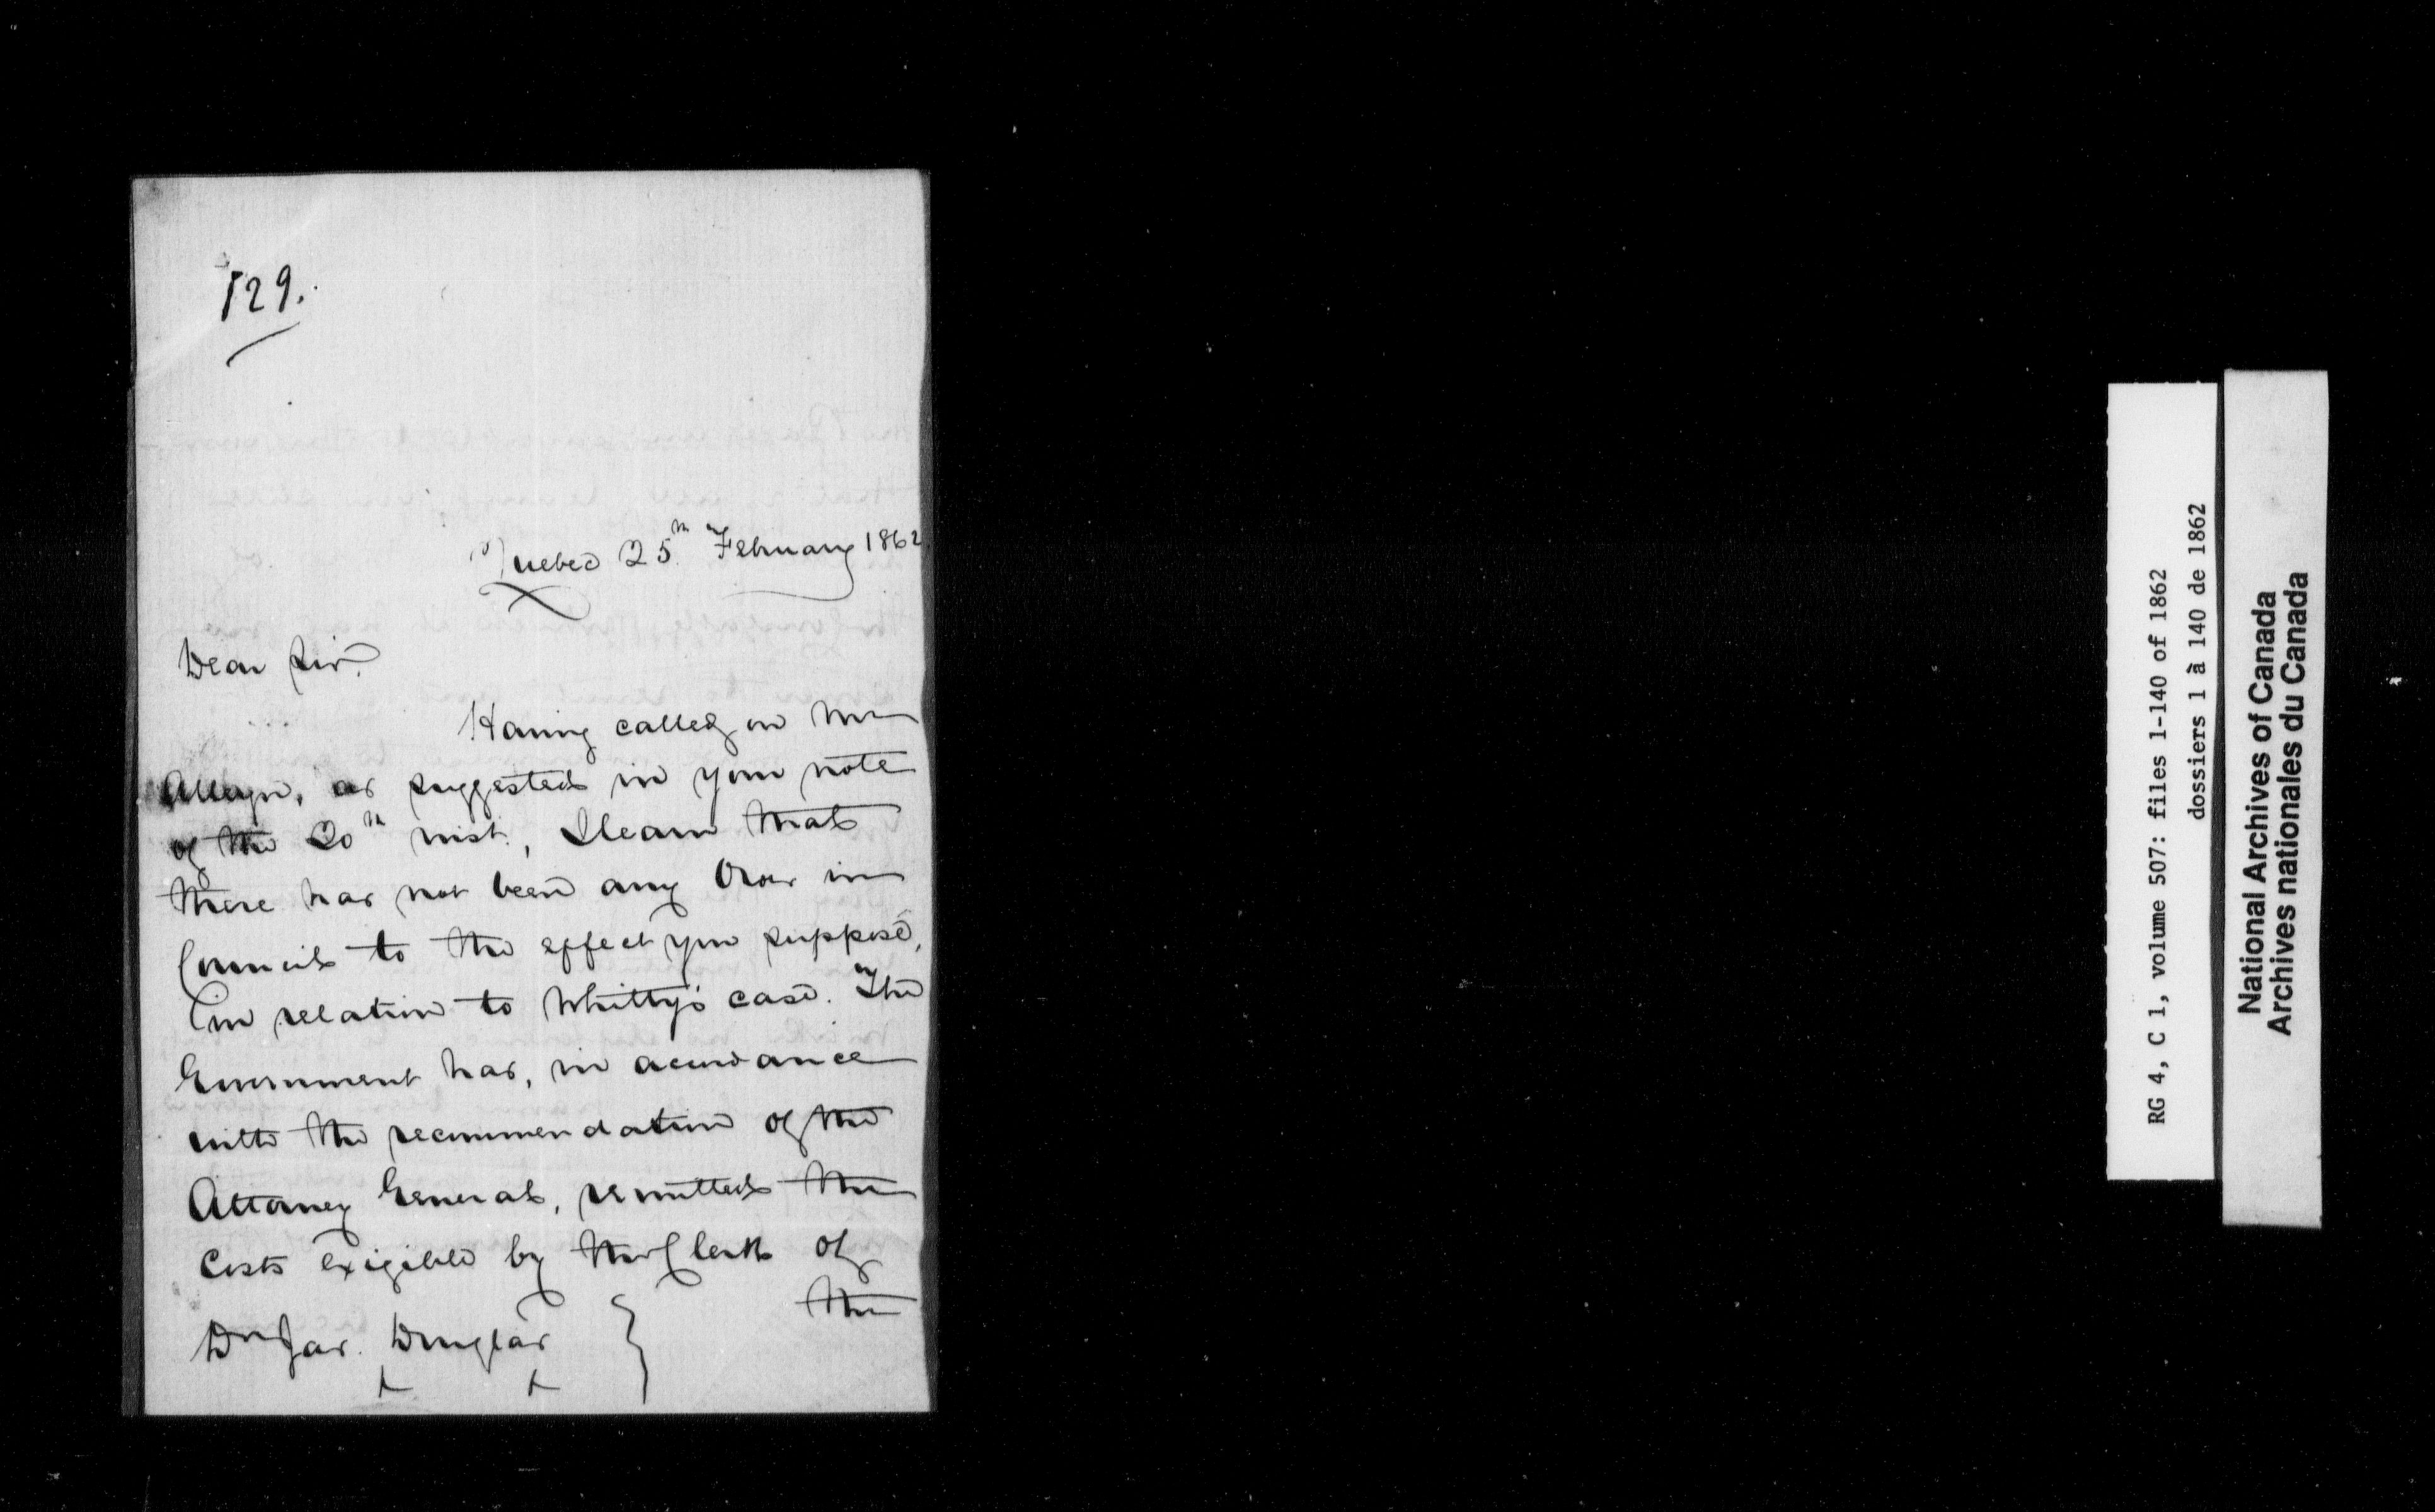 129.
Quebec 25th February 1862
Dear Sir.
Having called on Mr
Alleyn, as suggested in your note
of the 20th inst., I learn that
there has not been any Order in
Council to the effect you suppose,
in relation to Whitty's case. The
Government has, in accordance
with the recommendation of the
Attorney General, remitted the
Costs exigible by the Clerk of
the
Dr Jas. Douglas
RG 4, C 1, volume 507: files 1-140 of 1862
dossiers 1 à 140 de 1862
National Archives of Canada
Archives nationales du Canada